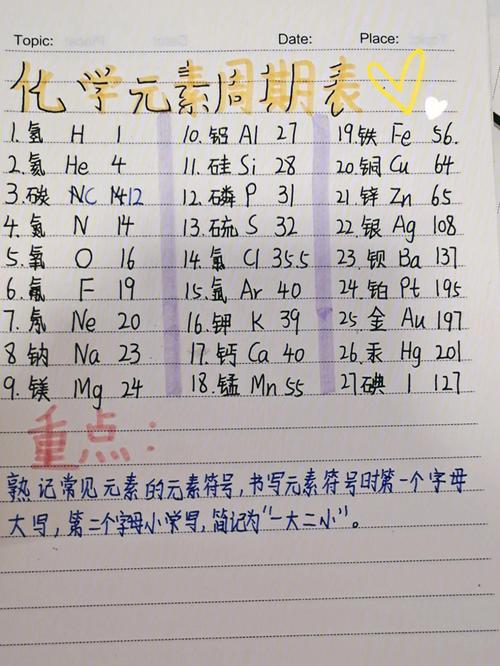 Topic: Date: Place:
化学元素周期表
1.氢 H 1
2.氦 He 4
3.碳 NC 1412
4.氮 N 14
5.氧 O 16
6.氟 F 19
7.氖 Ne 20
8 钠 Na 23
9.镁 Mg 24
10.铝 Al 27
11.硅 Si 28
12.磷 P 31
13.硫 S 32
14.氯 Cl 35.5
15.氩 Ar 40
16.钾 K 39
17.钙 Ca 40
18.锰 Mn 55
19.铁 Fe 56.
20.铜 Cu 64
21 锌 Zn 65
22.银 Ag 108
23.钡 Ba 137
24.铂 Pt 195
25 金 Au 197
26.汞 Hg 201
27碘 I 127
重点:
熟记常见元素的元素符号,书写元素符号时第一个字母
大写,第二个字母小写,简记为“一大二小”。